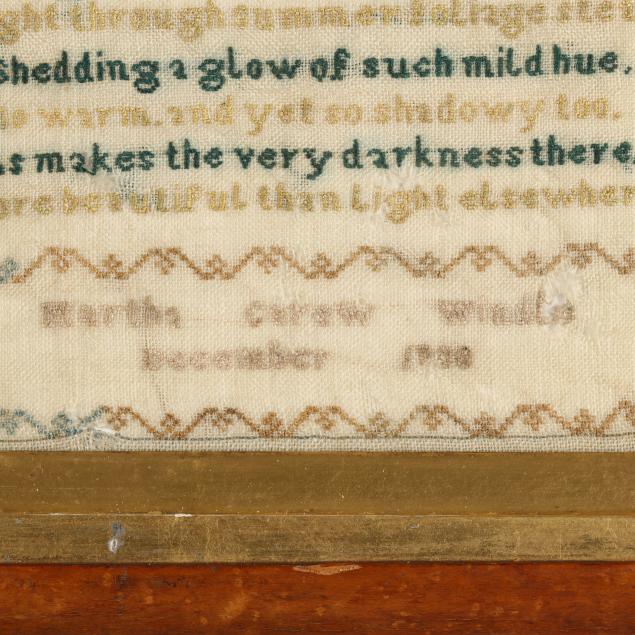 ght through summer foliage ste
shedding a glow of such mild hue,
so warm. and yet so shadowy too.
as makes the very darkness there
ore beautiful than light elsewher
Martha Carow
December